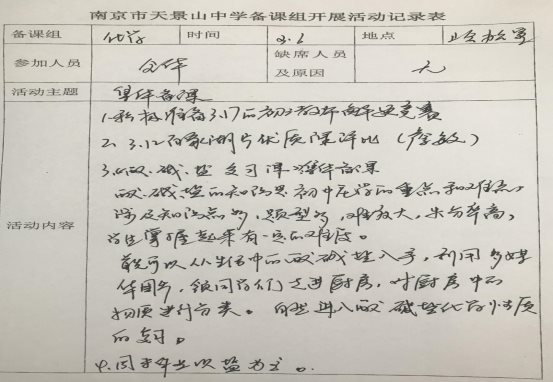 南京市天景山中学备课组开展活动记录表
备课组 化学 时间 3.1 地点
参加人员 全体 缺席人员及原因 无
活动主题 集体备课
活动内容
1.积极准备3.17的初三教师解题竞赛
2. 3.12的片优质课评比
3.酸.碱.盐 复习课 集体备课
酸.碱.盐的知识是初中化学的重点和难点,
涉及知识点多,题型多,难度大,失分率高,
学生掌握起来有一定的难度。
首先可以从生活中的酸碱盐入手,利用多媒
体,领同学们走进厨房,对厨房中的
物质进行分类。自然进入酸碱盐化学性质
的复习。
4.周末作业以盐为主。